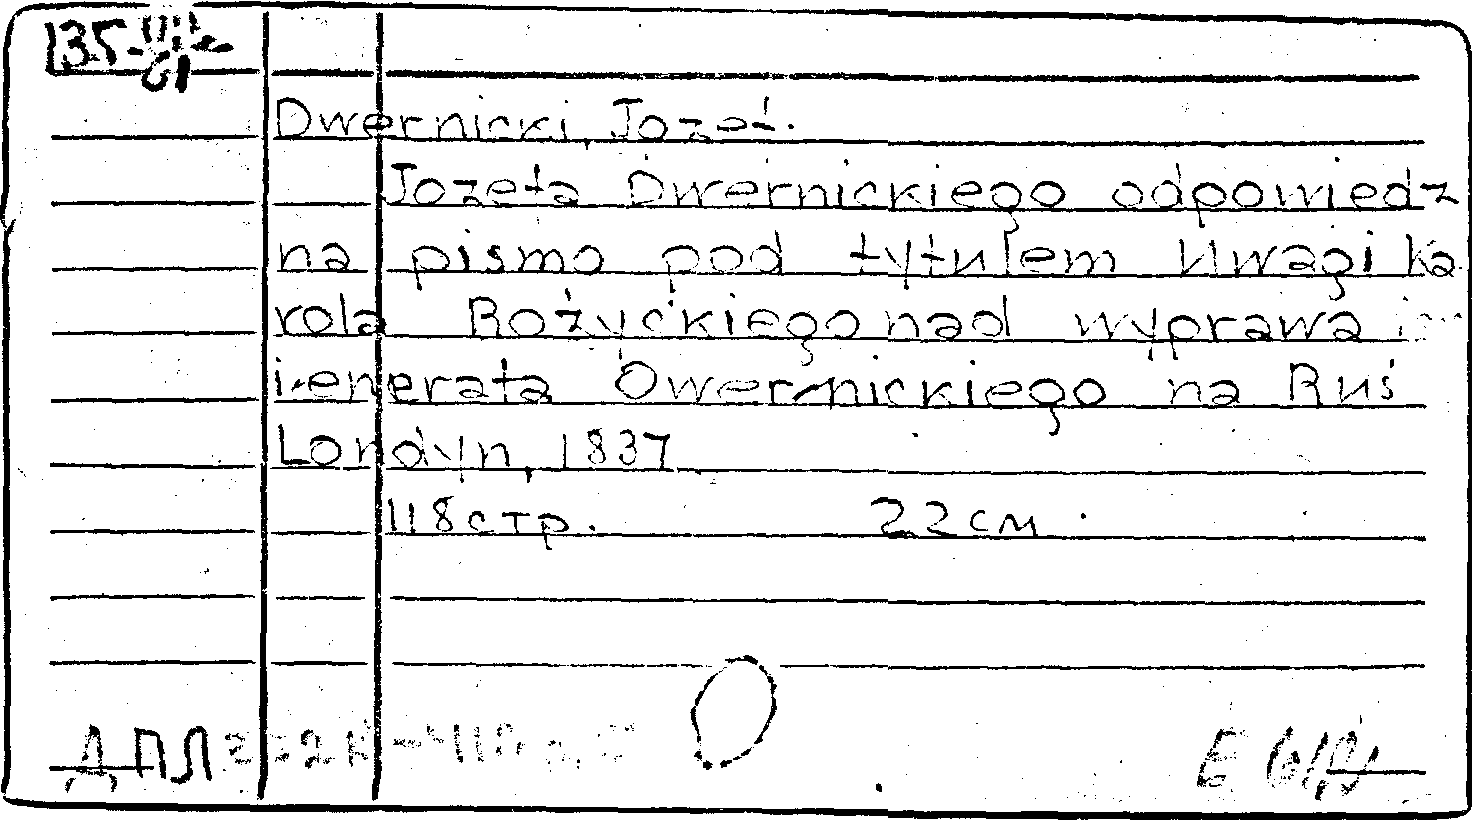 Dwernicki, Jozef.
Jozefa Dwernickiego odpowiedz
na pismo pod tytulem Uwagi Ka
rola Rożyckiego nad wyprawa
jenerała Dwernickiego na Ruś
Londyn, 1837
118 стр. 22 см.
ДПЛ